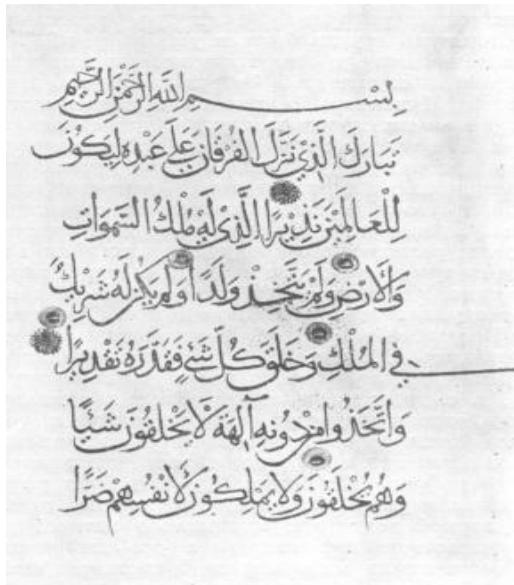 بِسْمِ اللهِ الرَّحْمٰنِ الرَّحِيْمِ
تَبَارَكَ الَّذِيْ نَزَّلَ الْفُرْقَانَ عَلَى عَبْدِهِ لِيَكُوْنَ
لِلْعَالَمِيْنَ نَذِيْرًا الَّذِيْ لَهُ مُلْكُ السَّمَوَاتِ
وَالْاَرْضِ وَلَمْ يَتَّخِذْ وَلَدًا وَلَمْ يَكُنْ لَهُ شَرِيْكٌ
فِي الْمُلْكِ وَخَلَقَ كُلَّ شَيْءٍ فَقَدَّرَهُ تَقْدِيْرًا
وَاتَّخَذُوا مِنْ دُونِهِ آلِهَةً لَا يَخْلُقُوْنَ شَيْئًا
وَهُمْ يُخْلَقُوْنَ وَلَا يَمْلِكُوْنَ لِاَنْفُسِهِمْ ضَرًّا